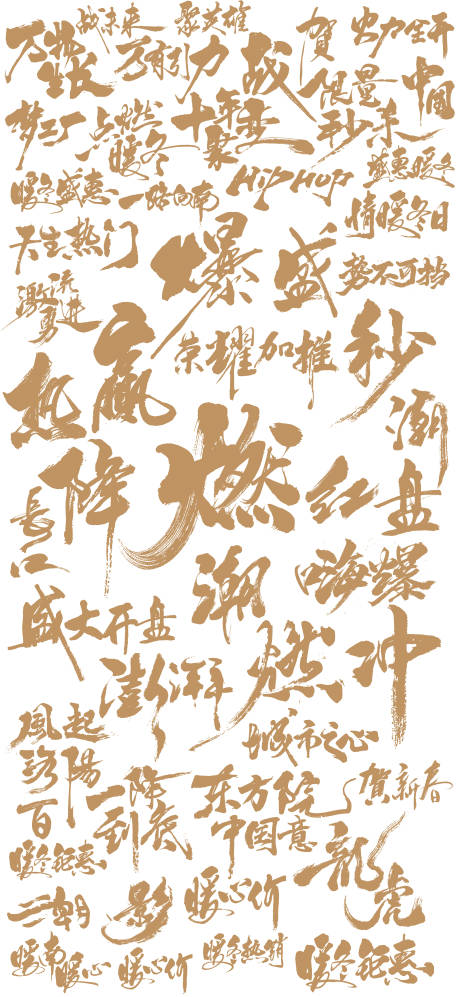 万物生长
战未来
聚英雄
万有引力
战
贺
火力全开
限量
中国
梦工厂
点燃
暖冬
十年
聚变
秒杀
盛惠暖冬
暖冬盛惠
一路向南
HipHop
情暖冬日
天生热门
爆
盛
势不可挡
激流勇进
赢
荣耀加推
秒
热
潮
降
燃
红
盘
長江
潮
嗨爆
盛大开盘
澎湃
燃
冲
風起
洛陽
城市之心
百
一降到底
东方院
中国意
贺新春
龍虎
暖冬钜惠
二朝
影
暖心价
暖南
暖心
暖心价
暖冬热销
暖冬钜惠